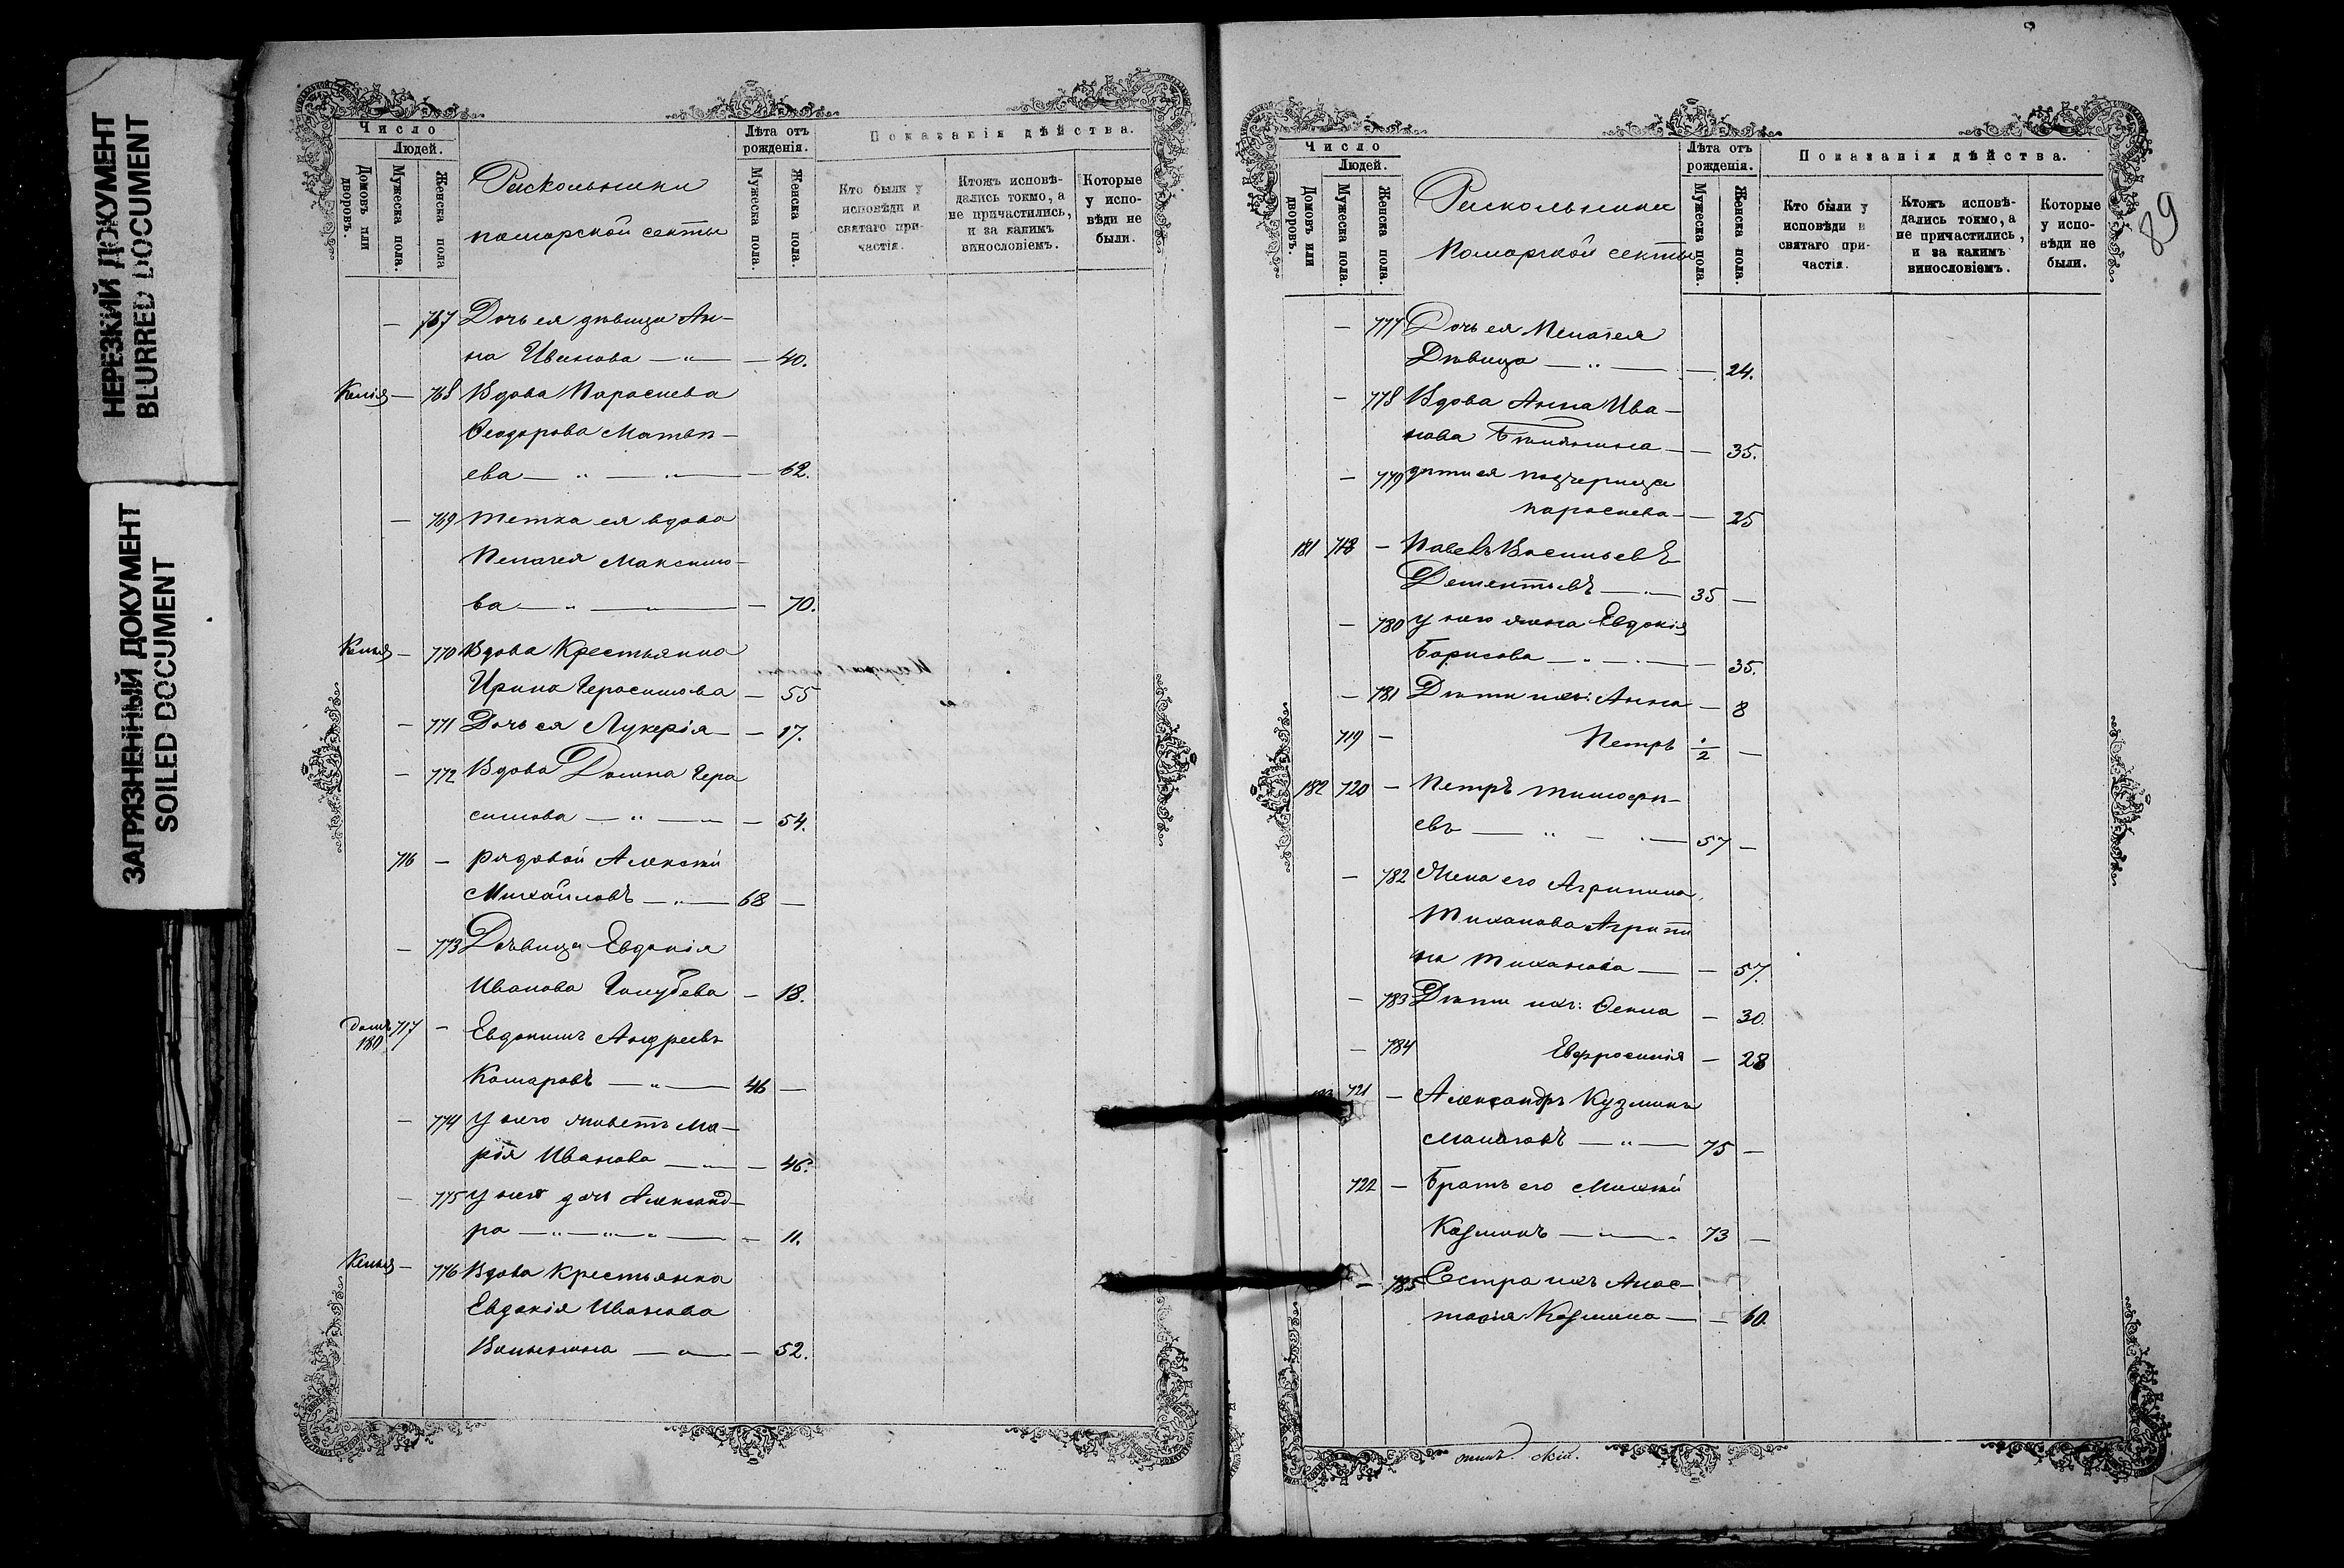 НЕРЕЗКИЙ ДОКУМЕНТ
BLURRED DOCUMENT
ЗАГРЯЗНЕННЫЙ ДОКУМЕНТ
SOILED DOCUMENT
Число
Людей.
Домовъ или дворовъ.
Мужеска пола.
Женска пола
Раскольники
поморской секты
Лѣта отъ рожденія.
Мужеска пола.
Женска пола.
Показанія дѣйства.
Кто были у исповѣди и святаго причастія.
Ктожъ исповѣдались токмо, а не причастились, и за какимъ винословіемъ.
Которые у исповѣди не были.
— 767 Дочь ея дѣвица Ан-
на Иванова — „ — — 40.
Келія — 768 Вдова Пораскева
Ѳеодорова Матвѣ-
ева — „ — „ — — 62.
— 769 тетка ея вдова
Пелагея Максимо-
ва — „ — „ — — 70.
Келья — 770 Вдова Крестьянка
Ирина Герасимова — 55
— 771 Дочь ея Лукерія — — 17.
— 772 Вдова Домна Гера
симова — „ — „ — 54.
716 — рядовой Алексѣй
Михайловъ — „ — 68 —
— 773 Дѣвица Евдокія
Иванова Голубева — 18.
домъ 180 717 — Евдокимъ Андреевъ
Комаровъ — „ — 46 —
— 774 У него живетъ Ма-
рія Иванова — „ — — 46.
— 775 У него дочь Александ-
ра — „ — „ — „ — — 11.
Келья — 776 Вдова крестьянка
Евдокія Иванова
— „ — — 52.
89
Число
Людей.
Домовъ или дворовъ.
Мужеска пола.
Женска пола.
Раскольники
Поморской секты
Лѣта отъ рожденія.
Мужеска пола.
Женска пола.
Показанія дѣйства.
Кто были у исповѣди и святаго причастія.
Ктожъ исповѣдались токмо, а не причастились, и за какимъ винословіемъ.
Которые у исповѣди не были.
— 777 Дочь ея Пелагея
Дѣвица — „ — — 24.
— 778 Вдова Анна Ива-
нова — — 35.
— 779 дѣти ея подчерица
пораскева — — 25
181 718 — Павелъ Васильевъ
Дементьевъ — „ — 35 —
— 780 У него жена Евдокія
Борисова — „ — — 35.
— 781 Дѣти ихъ: Анна — 8
719 — Петръ 1/2 —
182 720 — Петръ тимофѣ-
евъ — „ — „ — 57 —
— 782 Жена его Агрипина
Тиханова Агрипи
на тиханова — — 57.
— 783 Дѣти ихъ: Ѳекла — 30.
— 784 Евфросинія — 28
721 — Александръ Кузминъ
Малаговъ — „ — 75 —
722 — Братъ его
Козминъ — „ — 73 —
— 785 Сестра ихъ Анас-
тасія Козмина — — 60.